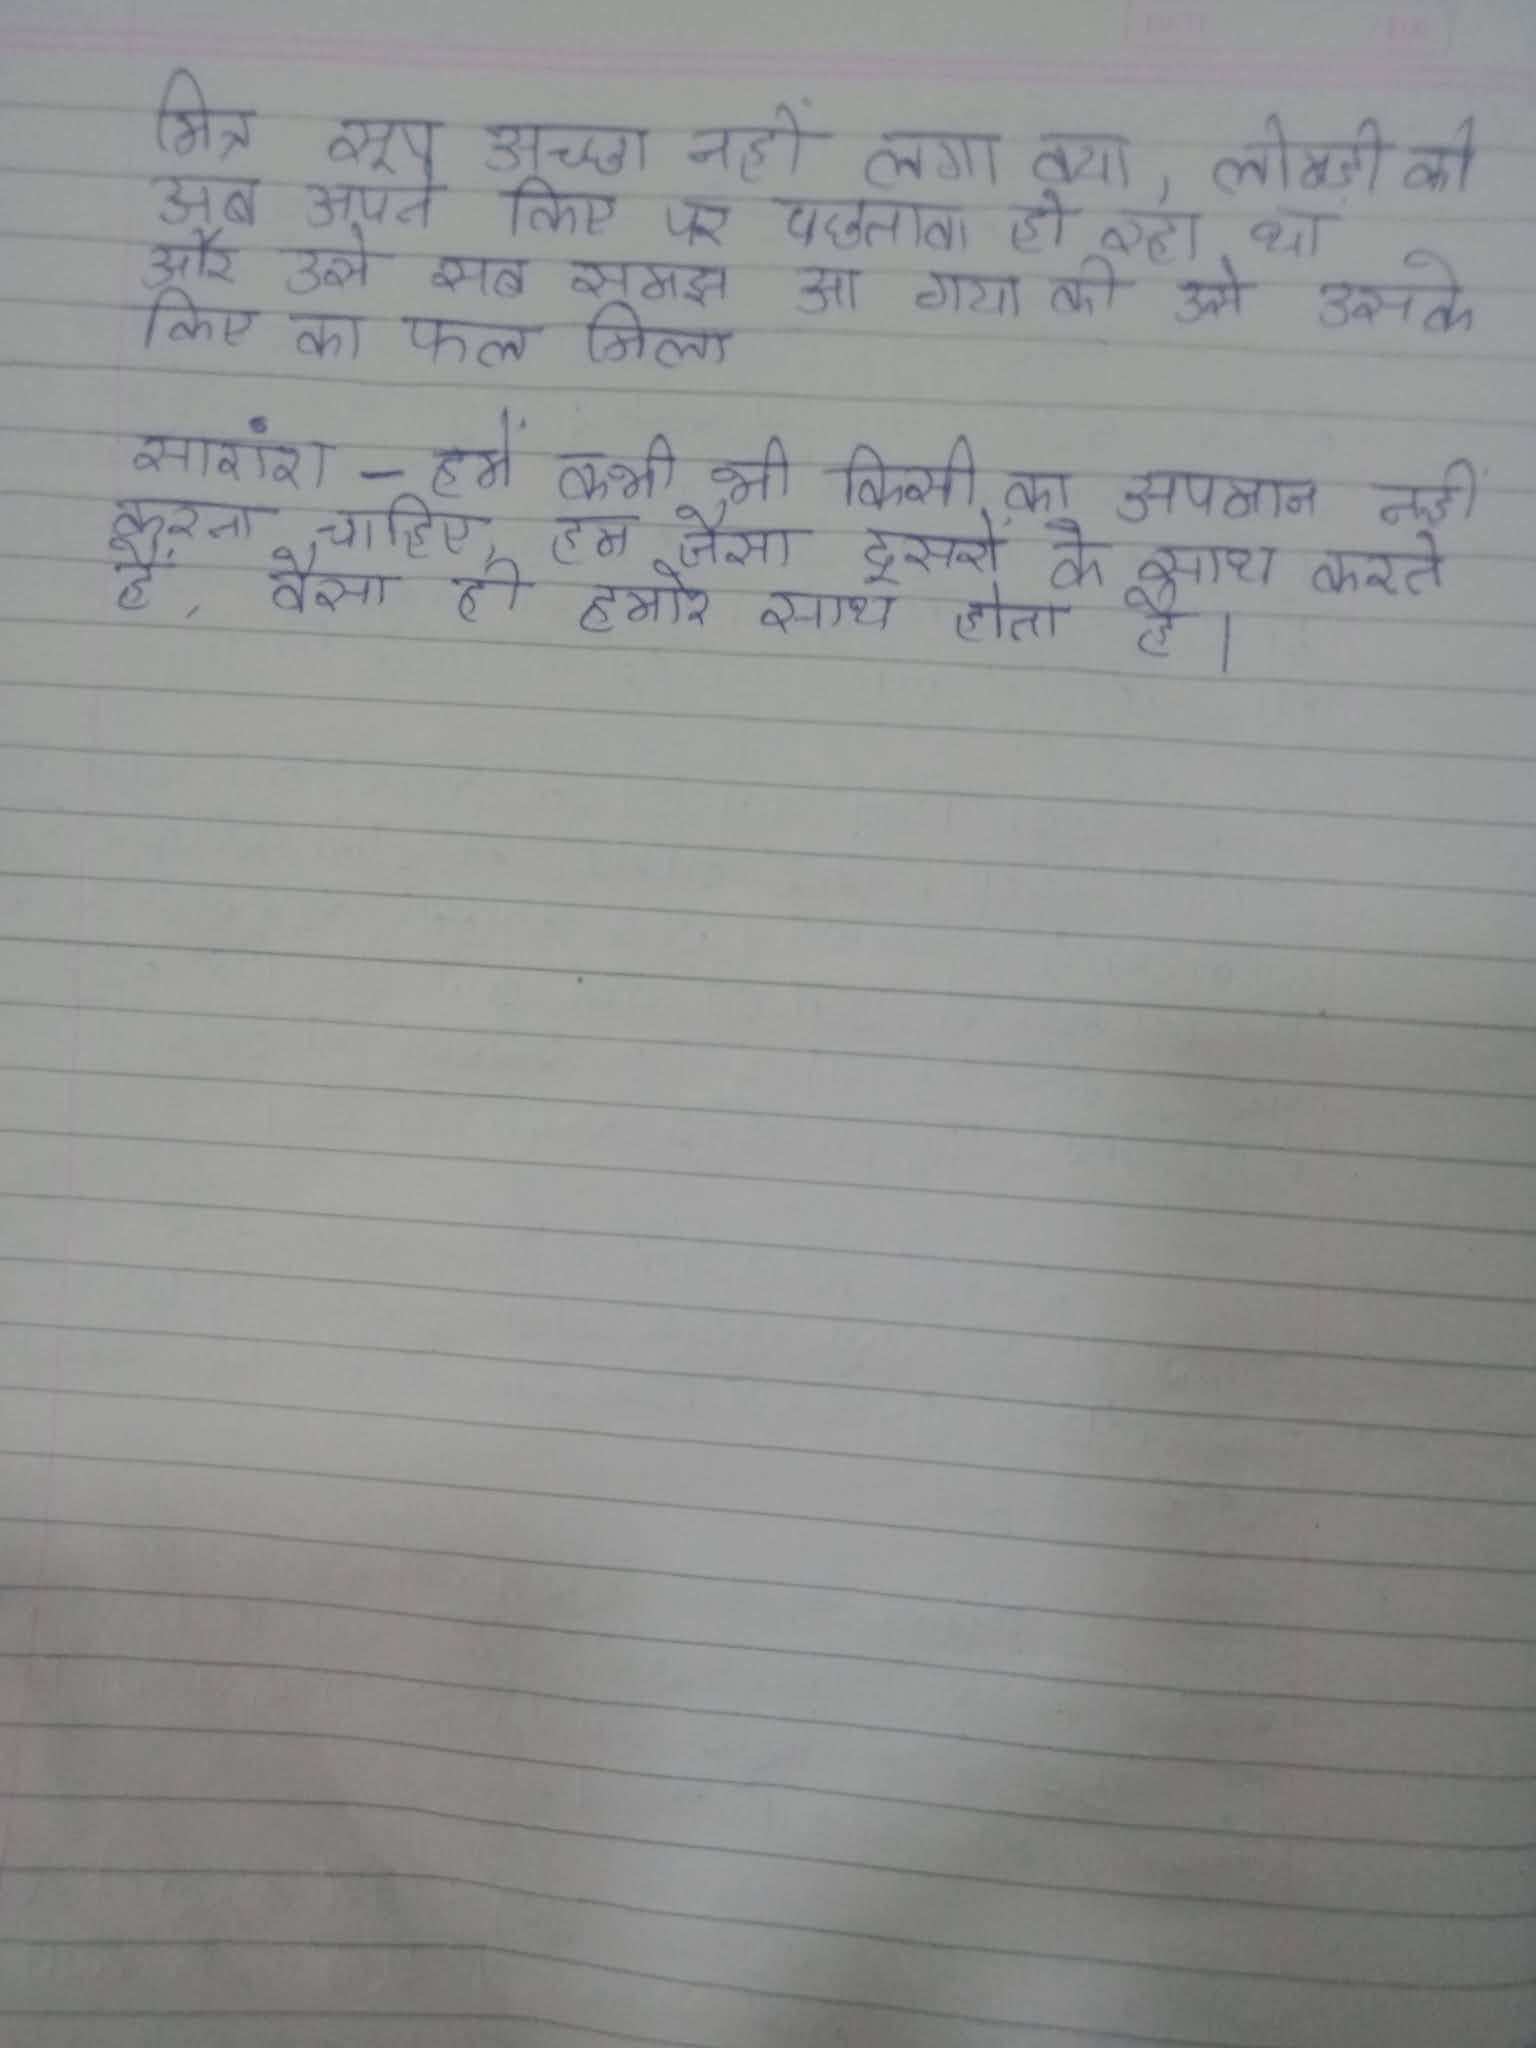 मित्र सूप अच्छा नहीं लगा क्या, लोमडी को
अब अपने किए पर पछतावा हो रहा था
और उसे सब समझ आ गया की उसे उसके
किए का फल मिला
सारांश - हमें कभी भी किसी का अपमान नहीं
करना चाहिए, हम जैसा दूसरों के साथ करते
हैं, वैसा ही हमारे साथ होता है।